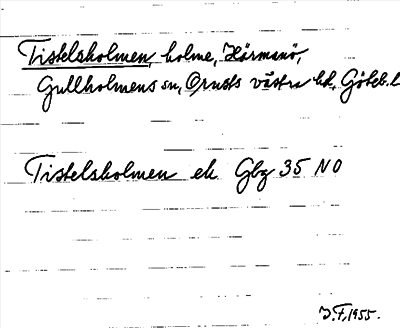 Tistelsholmen, holme, Härmanö,
Gullholmens sn, Orusts västra hd, Göteb. l
Tistelsholmen ek Gbg 35 NO
J.F. 1955.